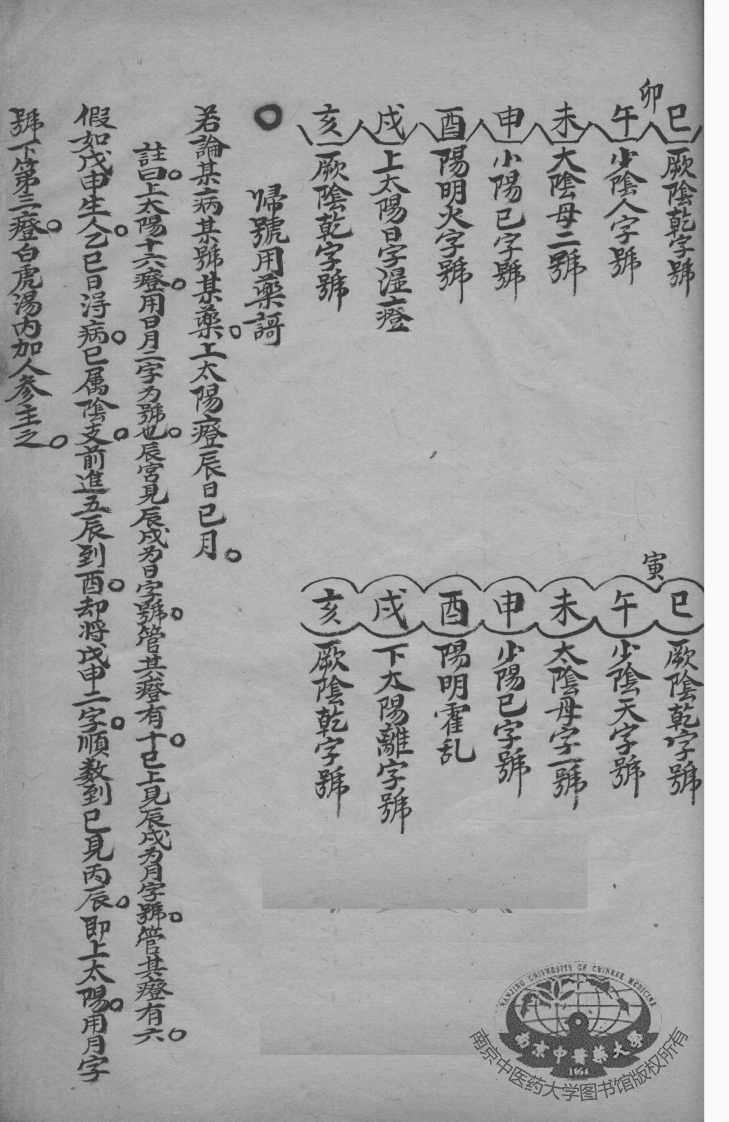 卯
巳 厥陰乾字號
午 少陰人字號
未 太陰母二號
申 少陽已字號
酉 陽明火字號
戌 上太陽日字湿癥
亥 厥陰乾字號
寅
巳 厥陰乾字號
午 少陰天字號
未 太陰母字一號
申 少陽已字號
酉 陽明霍乱
戌 下太陽離字號
亥 厥陰乾字號
歸號用藥謌
若論某病某號某藥。上太陽癥辰日巳月。
註曰。上太陽十六癥。用日月二字为號也。辰宮見辰戌为日字號。管其癥有十。巳上見辰戌为月字號。管其癥有六。
假如戊申生人。乙巳日淂病。巳属陰支。前進五辰到酉。却将戊申二字。順数到巳見丙辰。即上太陽。用月字
號下第三癥。白虎湯内加人参主之。
NANJING UNIVERSITY OF CHINESE MEDICINE
南京中醫藥大學
1954
南京中医药大学图书馆版权所有